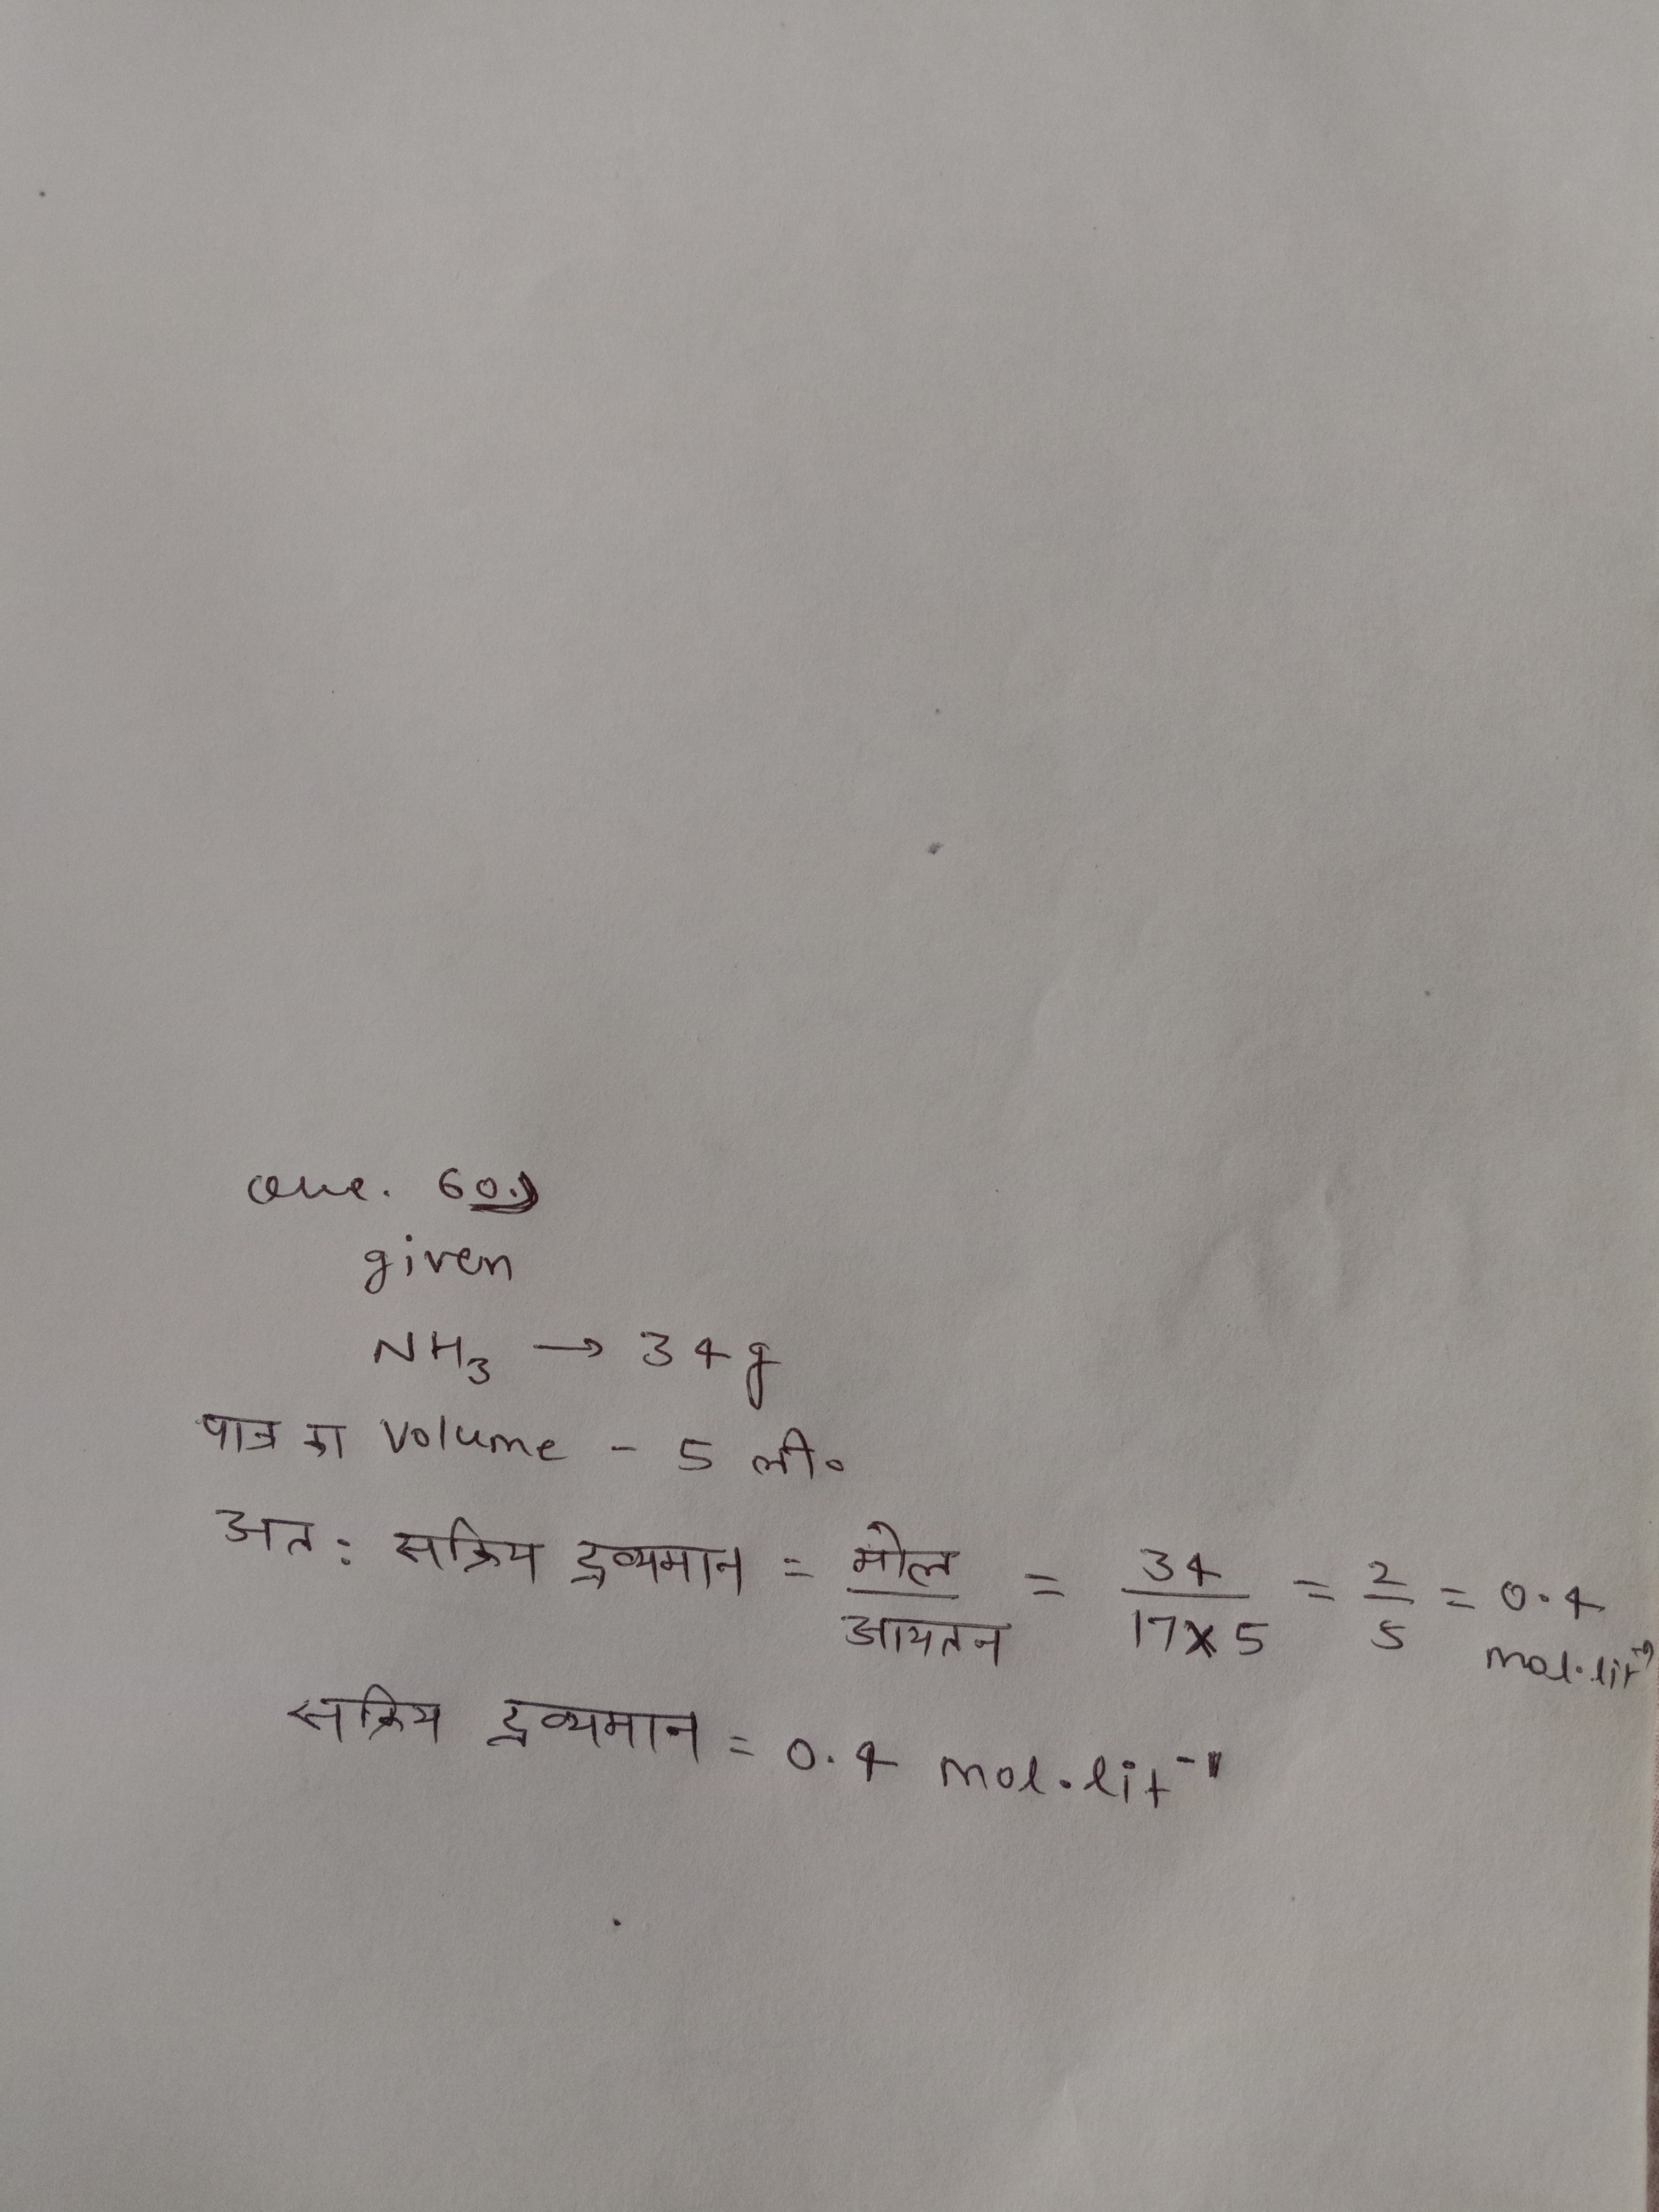 Que. 60.)
given
NH₃ → 34 g
पात्र का Volume - 5 ली०
अत: सक्रिय द्रव्यमान = मोल / आयतन = 34 / 17×5 = 2 / 5 = 0.4 mol.lit⁻¹
सक्रिय द्रव्यमान = 0.4 mol.lit⁻¹